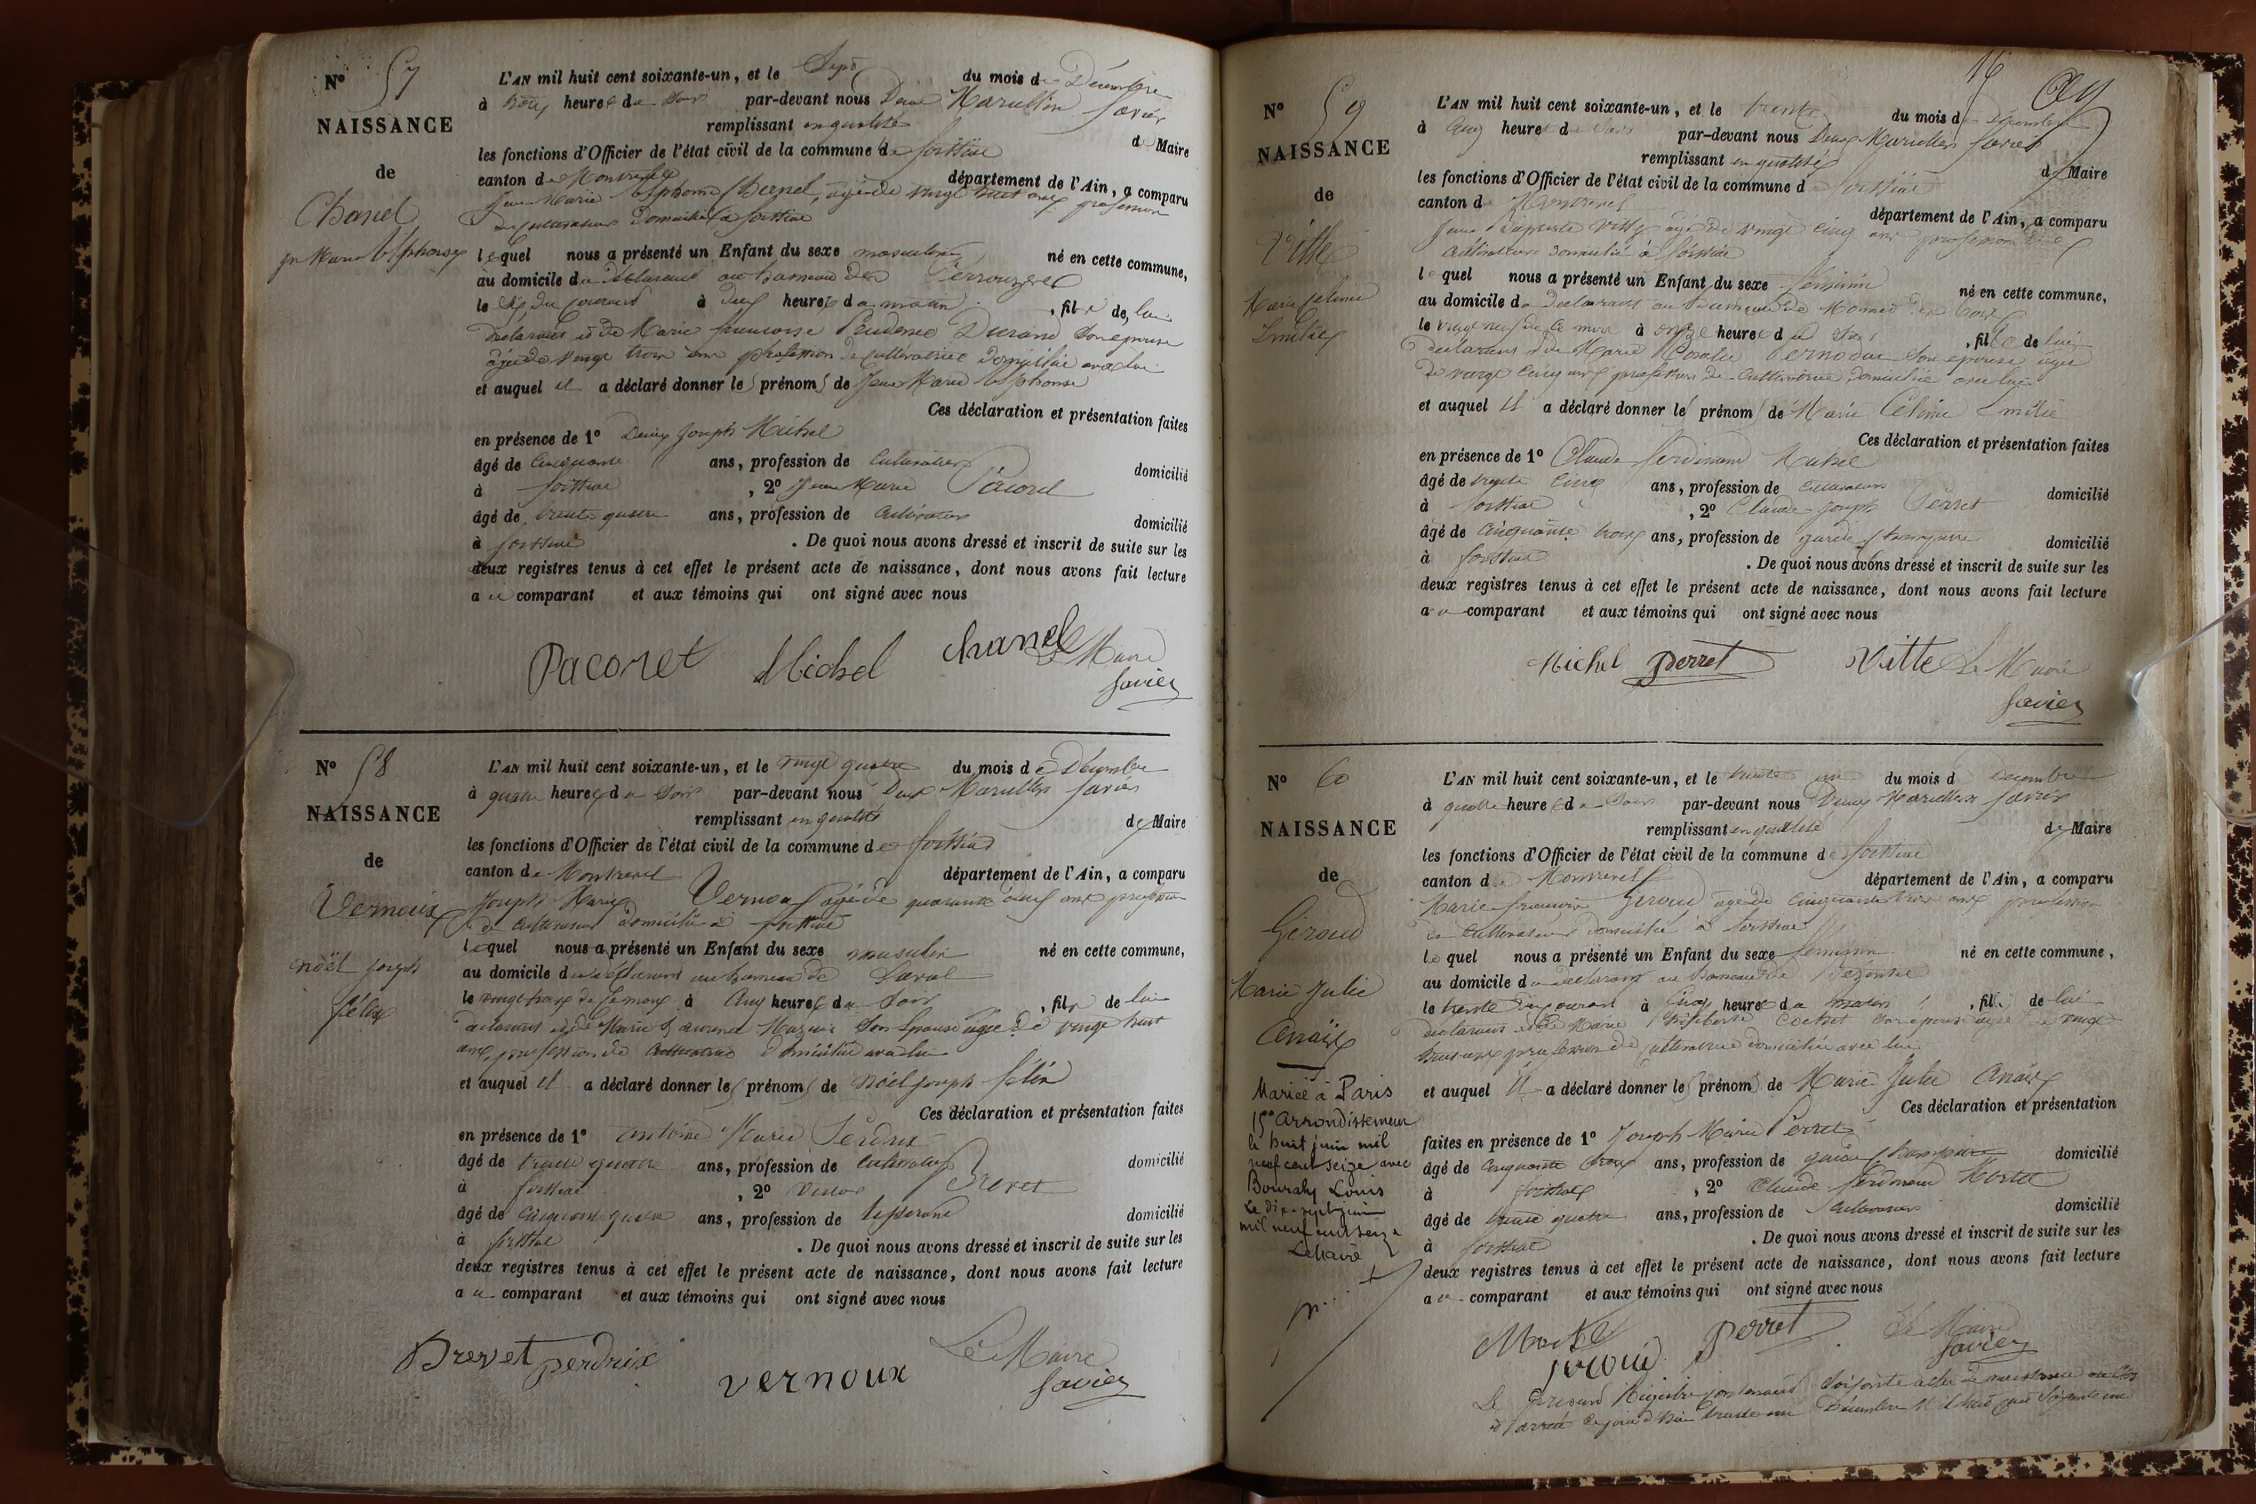 N° 57
NAISSANCE
de
Chanel
Jn Marie Alphonse
L'AN mil huit cent soixante-un, et le Sept du mois de Décembre
à trois heures du Soir par-devant nous Denis Marullier Savier
remplissant en qualité de Maire
les fonctions d'Officier de l'état civil de la commune de foissiat
canton de Montrevel département de l'Ain, a comparu
Jean Marie Alphonse Chanel, age de vingt huit ans profession
de cultivateur domicilié a foissiat
lequel nous a présenté un Enfant du sexe masculin né en cette commune,
au domicile du déclarant au hameau des
le six du courant à deux heures du matin, fils de, lui
declarant et de Marie francoise Prudence Durand Son epouse
agée de vingt trois ans profession de cultivatrice domiciliée avec lui
et auquel il a déclaré donner les prénoms de Jean Marie Alphonse
Ces déclaration et présentation faites
en présence de 1° Denis Joseph Michel
âgé de Cinquante ans, profession de Cultivateur domicilié
à foissiat, 2° Jean Marie Pacoret
âgé de trente quatre ans, profession de Cultivateur domicilié
à foissiat. De quoi nous avons dressé et inscrit de suite sur les
deux registres tenus à cet effet le présent acte de naissance, dont nous avons fait lecture
au comparant et aux témoins qui ont signé avec nous
Pacoret Michel Chanel Le Maire
Savier
N° 58
NAISSANCE
de
Vernoux
noël joseph
félix
L'AN mil huit cent soixante-un, et le vingt quatre du mois de Décembre
à quatre heures du Soir par-devant nous Denis Marullier Savier
remplissant en qualité de Maire
les fonctions d'Officier de l'état civil de la commune de foissiat
canton de Montrevel département de l'Ain, a comparu
Joseph Marie Vernoux agé de quarante ans profession
de cultivateur domicilié à foissiat
lequel nous a présenté un Enfant du sexe masculin né en cette commune,
au domicile du déclarant au hameau de Laval
le vingt trois de ce mois à cinq heures du Soir, fils de lui
declarant et de Marie Son Epouse agée de vingt huit
ans, profession de cultivatrice domiciliée avec lui
et auquel il a déclaré donner les prénoms de Noël joseph félix
Ces déclaration et présentation faites
en présence de 1° antoine Marie Perdrix
âgé de trente quatre ans, profession de Cultivateur domicilié
à foissiat, 2° Victor Brevet
âgé de Cinquante quatre ans, profession de domicilié
à foissiat. De quoi nous avons dressé et inscrit de suite sur les
deux registres tenus à cet effet le présent acte de naissance, dont nous avons fait lecture
au comparant et aux témoins qui ont signé avec nous
Brevet perdrix Le Maire
vernoux Savier
16
N° 59
NAISSANCE
de
Vitte
Marie Céline
Emilie
L'AN mil huit cent soixante-un, et le trente du mois de Décembre
à cinq heures du Soir par-devant nous Denis Marullier Savier
remplissant en qualité de Maire
les fonctions d'Officier de l'état civil de la commune de foissiat
canton de Montrevel département de l'Ain, a comparu
Jean Baptiste Vitte agé de vingt cinq ans profession de
cultivateur domicilié à foissiat
lequel nous a présenté un Enfant du sexe féminin né en cette commune,
au domicile du declarant au hameau de
le vingt neuf de ce mois à onze heures du Soir, fille de lui
declarant et de Marie Rosalie Son epouse agée
de vingt cinq ans profession de cultivatrice domiciliée avec lui
et auquel il a déclaré donner les prénoms de Marie Céline Emilie
Ces déclaration et présentation faites
en présence de 1° Claude ferdinand Michel
âgé de trente cinq ans, profession de cultivateur domicilié
à foissiat, 2° Claude joseph Perret
âgé de cinquante trois ans, profession de garde champetre domicilié
à foissiat. De quoi nous avons dressé et inscrit de suite sur les
deux registres tenus à cet effet le présent acte de naissance, dont nous avons fait lecture
au comparant et aux témoins qui ont signé avec nous
Michel Perret Vitte Le Maire
Savier
N° 60
NAISSANCE
de
Giroud
Marie Julie
Anaïs
Mariée à Paris
15e Arrondissement
le huit juin mil
neuf cent seize avec
Bouraly Louis
Le dix-sept juin
mil neuf cent seize
Le Maire
L'AN mil huit cent soixante-un, et le trente un du mois de Décembre
à quatre heures du Soir par-devant nous Denis Marullier Savier
remplissant en qualité de Maire
les fonctions d'Officier de l'état civil de la commune de foissiat
canton de Montrevel département de l'Ain, a comparu
Marie francois Giroud agé de cinquante trois ans profession
de cultivateur domicilié à foissiat
lequel nous a présenté un Enfant du sexe féminin né en cette commune,
au domicile du declarant au hameau de
le trente du courant à cinq heures du matin, fille de lui
declarant et de Marie Philiberte Cochet son epouse agée de vingt
huit ans profession de cultivatrice domiciliée avec lui
et auquel il a déclaré donner les prénoms de Marie Julie Anaïs
Ces déclaration et présentation
faites en présence de 1° Joseph Marie Perret
âgé de cinquante trois ans, profession de garde champetre domicilié
à foissiat, 2° Claude ferdinand
âgé de trente quatre ans, profession de Cultivateur domicilié
à foissiat. De quoi nous avons dressé et inscrit de suite sur les
deux registres tenus à cet effet le présent acte de naissance, dont nous avons fait lecture
au comparant et aux témoins qui ont signé avec nous
Perret Le Maire
giroud Savier
Le présent Registre contenant Soixante actes de naissance
arrêté ce jourd'hui trente un Décembre Mil huit cent Soixante un